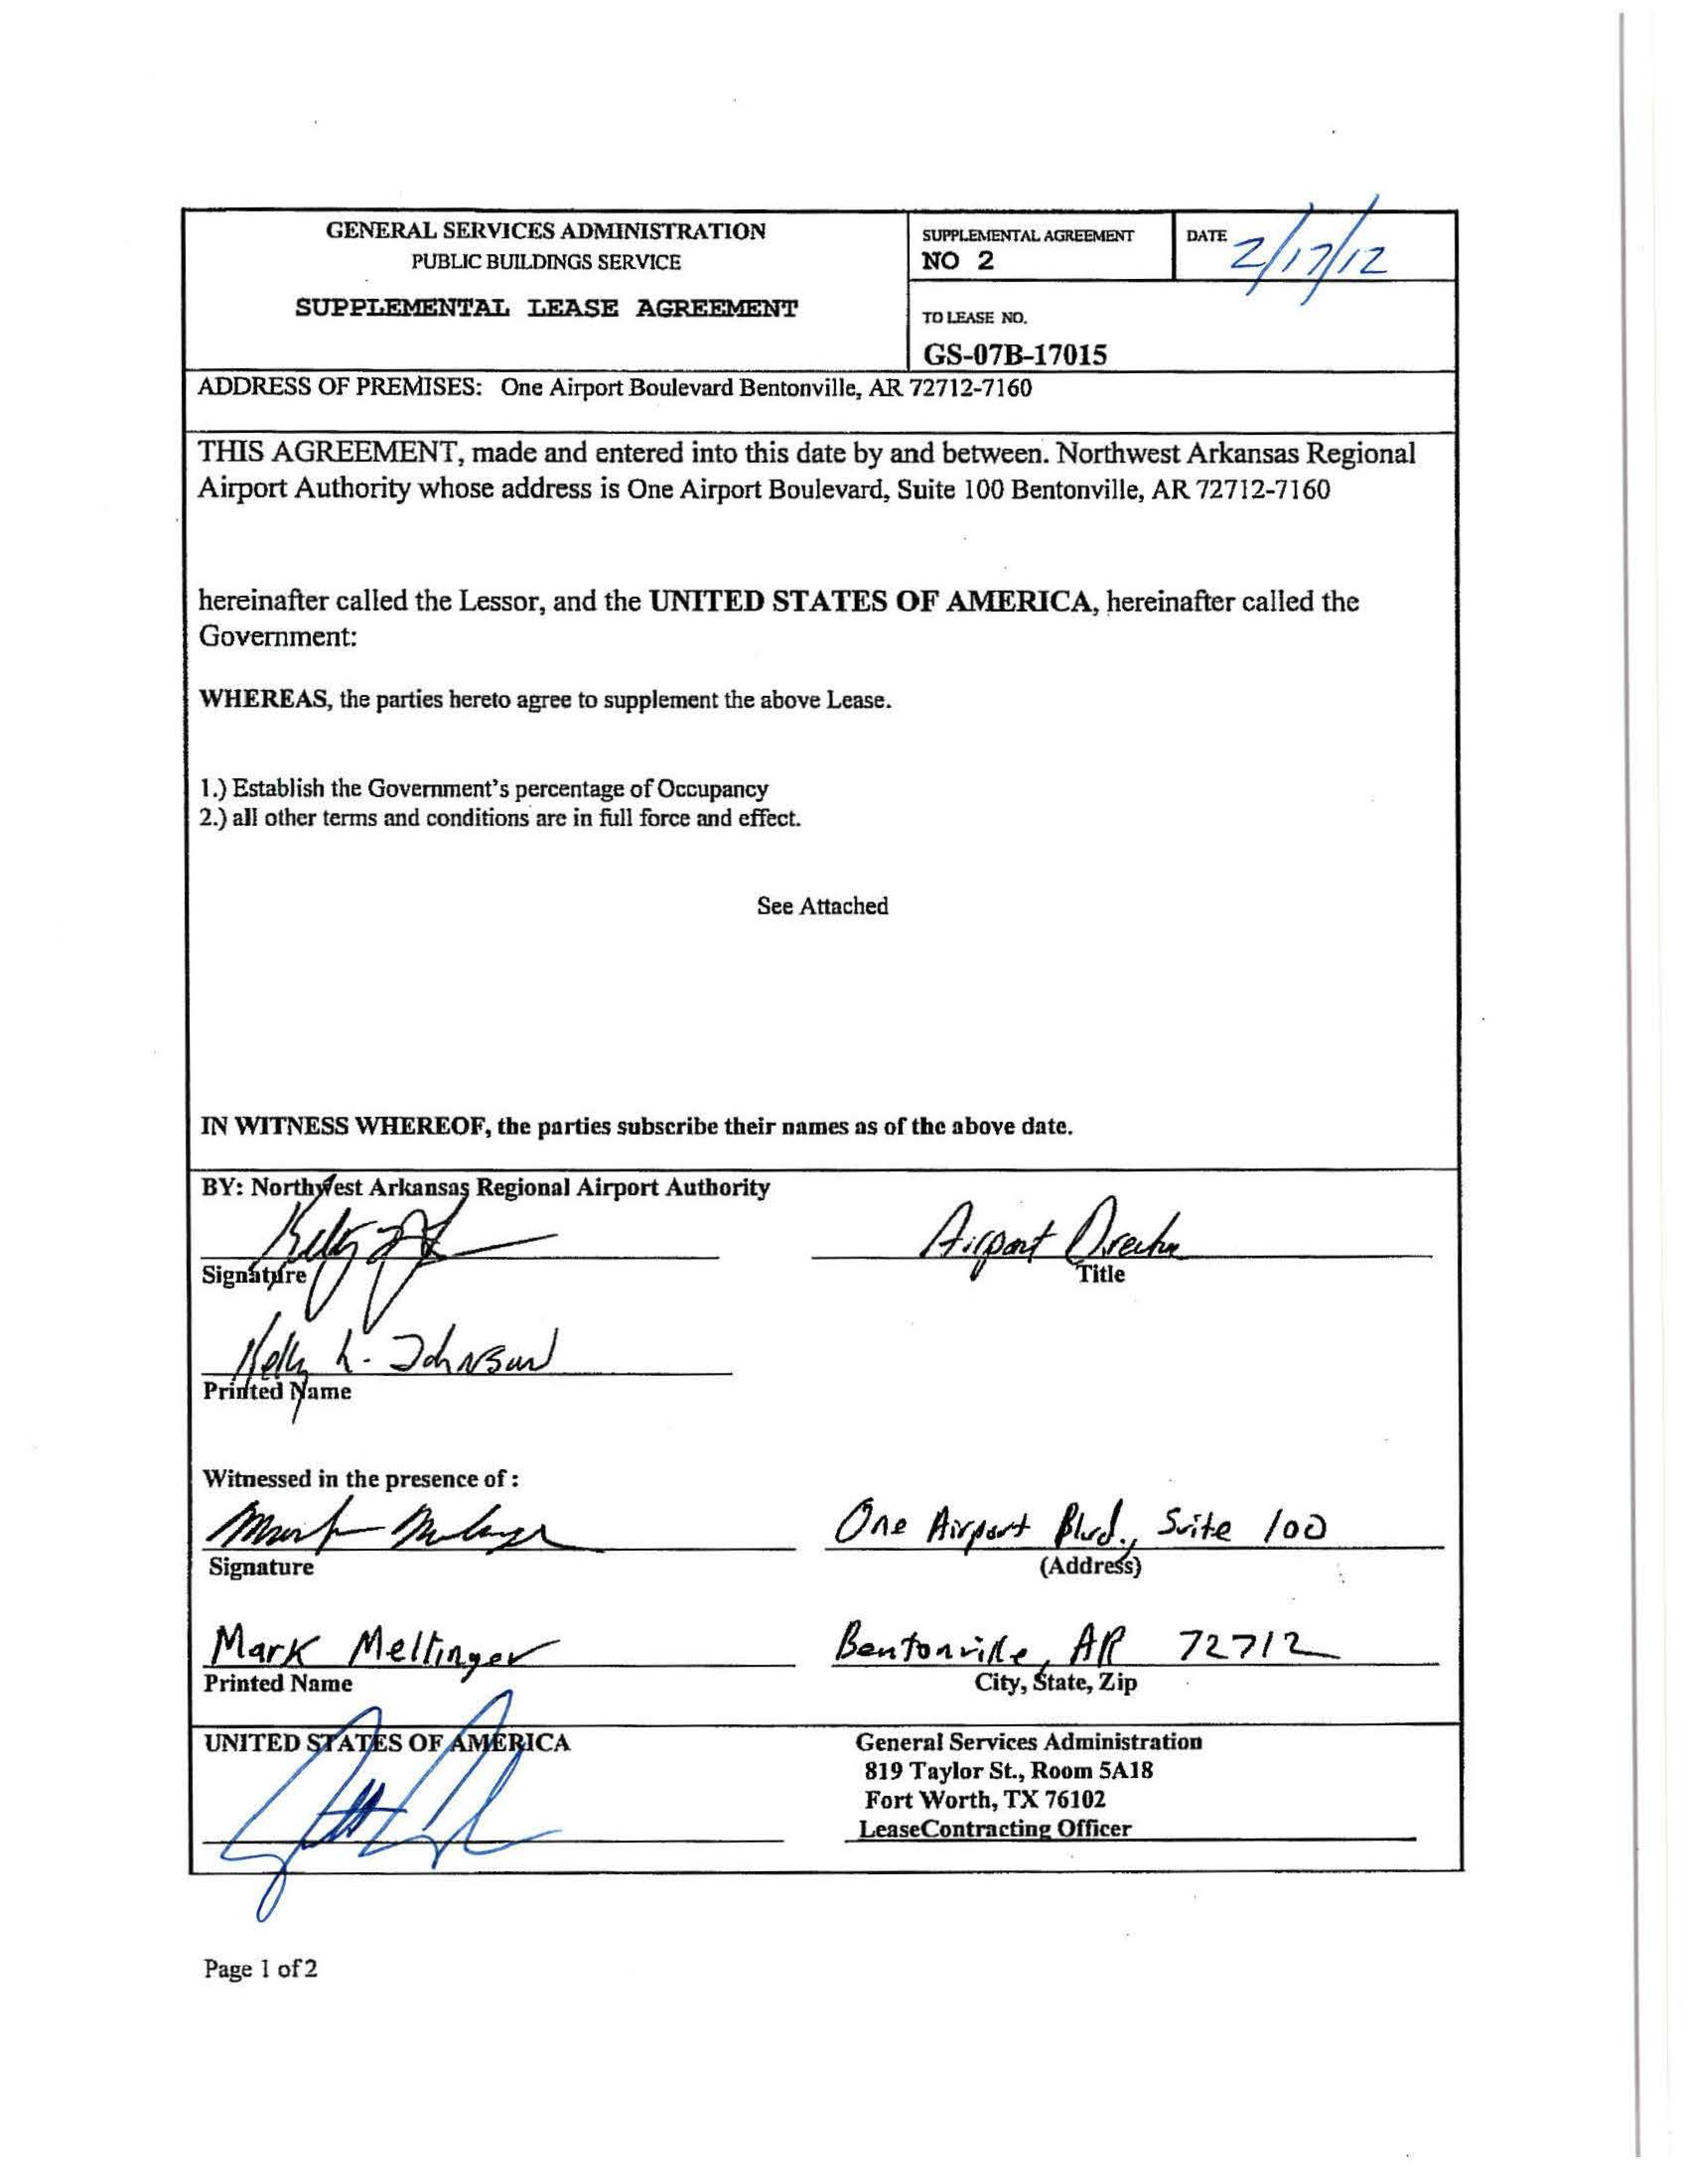 GENERAL SERVICES ADMINISTRATION
PUBLIC BUILDINGS SERVICE
SUPPLEMENTAL LEASE AGREEMENT
SUPPLEMENTAL AGREEMENT
NO 2
DATE 2/17/12
TO LEASE NO.
GS-07B-17015
ADDRESS OF PREMISES: One Airport Boulevard Bentonville, AR 72712-7160
THIS AGREEMENT, made and entered into this date by and between. Northwest Arkansas Regional
Airport Authority whose address is One Airport Boulevard, Suite 100 Bentonville, AR 72712-7160
hereinafter called the Lessor, and the UNITED STATES OF AMERICA, hereinafter called the
Government:
WHEREAS, the parties hereto agree to supplement the above Lease.
1.) Establish the Government's percentage of Occupancy
2.) all other terms and conditions are in full force and effect.
See Attached
IN WITNESS WHEREOF, the parties subscribe their names as of the above date.
BY: Northwest Arkansas Regional Airport Authority
Airport Director
Signature
Title
Kelly L. Johnson
Printed Name
Witnessed in the presence of :
One Airport Blvd., Suite 100
Signature
(Address)
Mark Mellinger
Bentonville, AR 72712
Printed Name
City, State, Zip
UNITED STATES OF AMERICA
General Services Administration
819 Taylor St., Room 5A18
Fort Worth, TX 76102
LeaseContracting Officer
Page 1 of 2